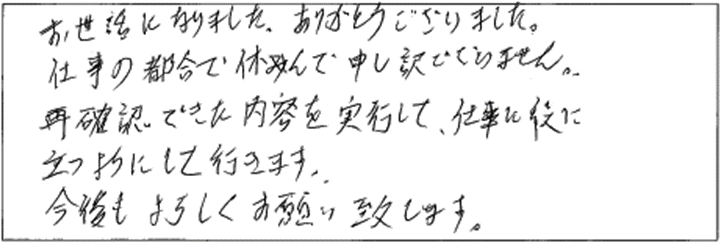 お世話になりました。ありがとうございました。
仕事の都合で休みんで申し訳ございません。
再確認できた内容を実行して、仕事に役に
立つようにして行きます。
今後もよろしくお願い致します。